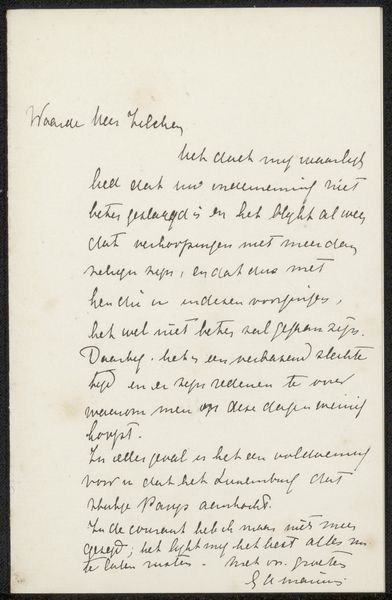 Waarde Heer Zilcken
Het doet mij waarlijk
leed dat uw onderneming niet
beter geslaagd is en het blijkt al weer
dat verhoopingen niet meer dan
zijn, en dat dus met
hen die u in dezen voorgingen,
het wel niet beter zal gegaan zijn.
Daarbij het is een verbazend slechte
tijd en er zijn redenen te over
waarom men op deze dagen weinig
koopt.
In ieder geval is het een voldoening
voor u dat het Luxembourg dat
stukje Parijs aankocht.
In de courant heb ik maar niets meer
gezegd; het lijkt mij het best alles nu
te laten rusten. Met vr. groeten
G H Marius